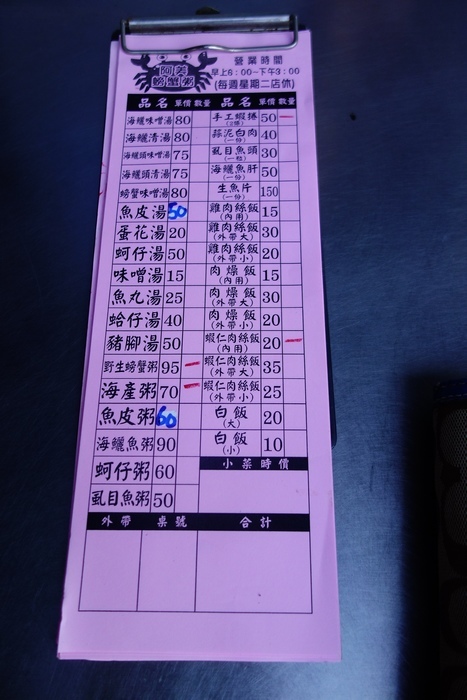 阿美
螃蟹粥
營業時間
早上6:00~下午3:00
(每週星期二店休)
品名 單價 數量 品名 單價 數量
海鱺味噌湯 80 手工蝦捲(2條) 50
海鱺清湯 80 蒜泥白肉(一份) 40
海鱺頭味噌湯 75 虱目魚頭(一粒) 30
海鱺頭清湯 75 海鱺魚肝(一份) 50
螃蟹味噌湯 80 生魚片(一份) 150
魚皮湯 50 雞肉絲飯(內用) 15
蛋花湯 20 雞肉絲飯(外帶大) 30
蚵仔湯 50 雞肉絲飯(外帶小) 20
味噌湯 15 肉燥飯(內用) 15
魚丸湯 25 肉燥飯(外帶大) 30
蛤仔湯 40 肉燥飯(外帶小) 20
豬腳湯 50 蝦仁肉絲飯(內用) 20
野生螃蟹粥 95 蝦仁肉絲飯(外帶大) 35
海產粥 70 蝦仁肉絲飯(外帶小) 25
魚皮粥 60 白飯(大) 20
海鱺魚粥 90 白飯(小) 10
蚵仔粥 60 小菜時價
虱目魚粥 50
外帶 桌號 合計